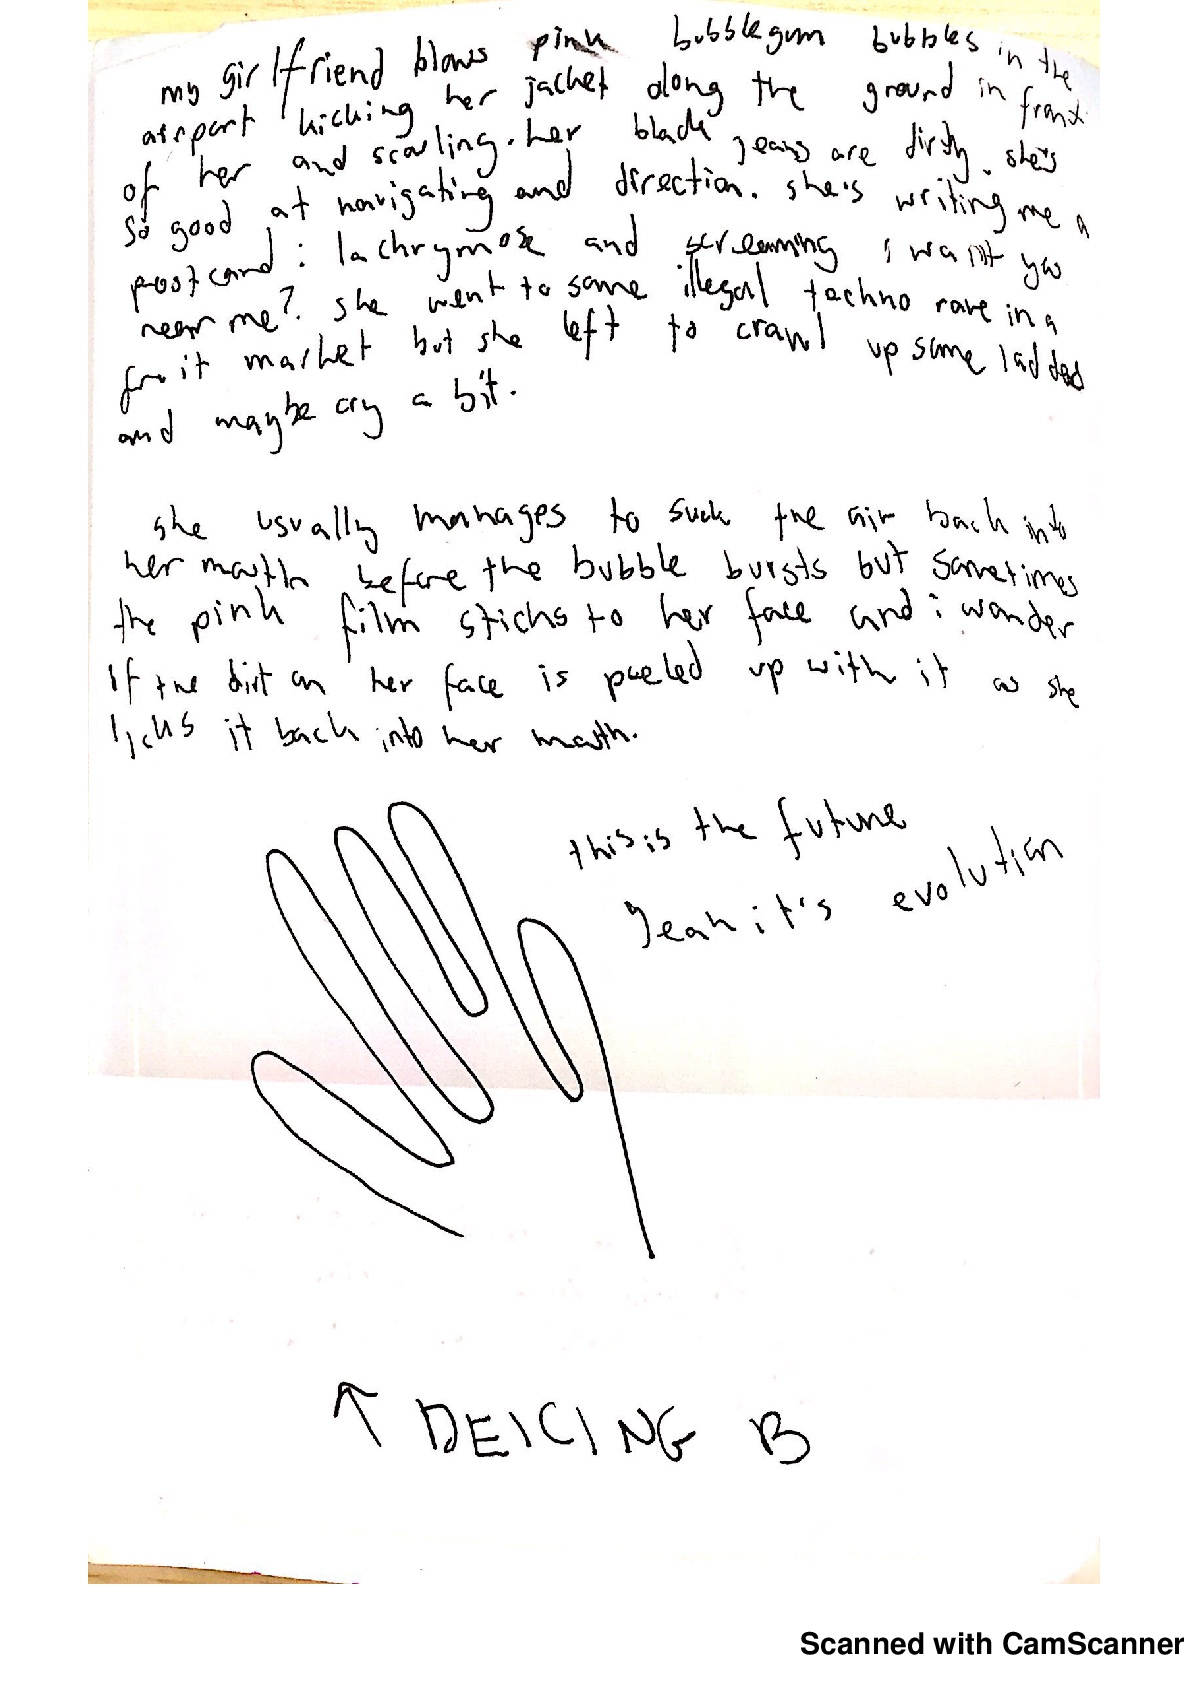 my girlfriend blows pink bubblegum bubbles in the
airport kicking her jacket along the ground in front
of her and scowling. her black jeans are dirty. she's
so good at navigating and direction. she's writing me a
postcard: lachrymose and screaming i want you
near me? she went to some illegal techno rave in a
fruit market but she left to crawl up some ladder
and maybe cry a bit.
she usually manages to suck the air back into
her mouth before the bubble bursts but sometimes
the pink film sticks to her face and i wonder
if the dirt on her face is peeled up with it as she
licks it back into her mouth.
this is the future
yeah it's evolution
↑ DEICING B
Scanned with CamScanner